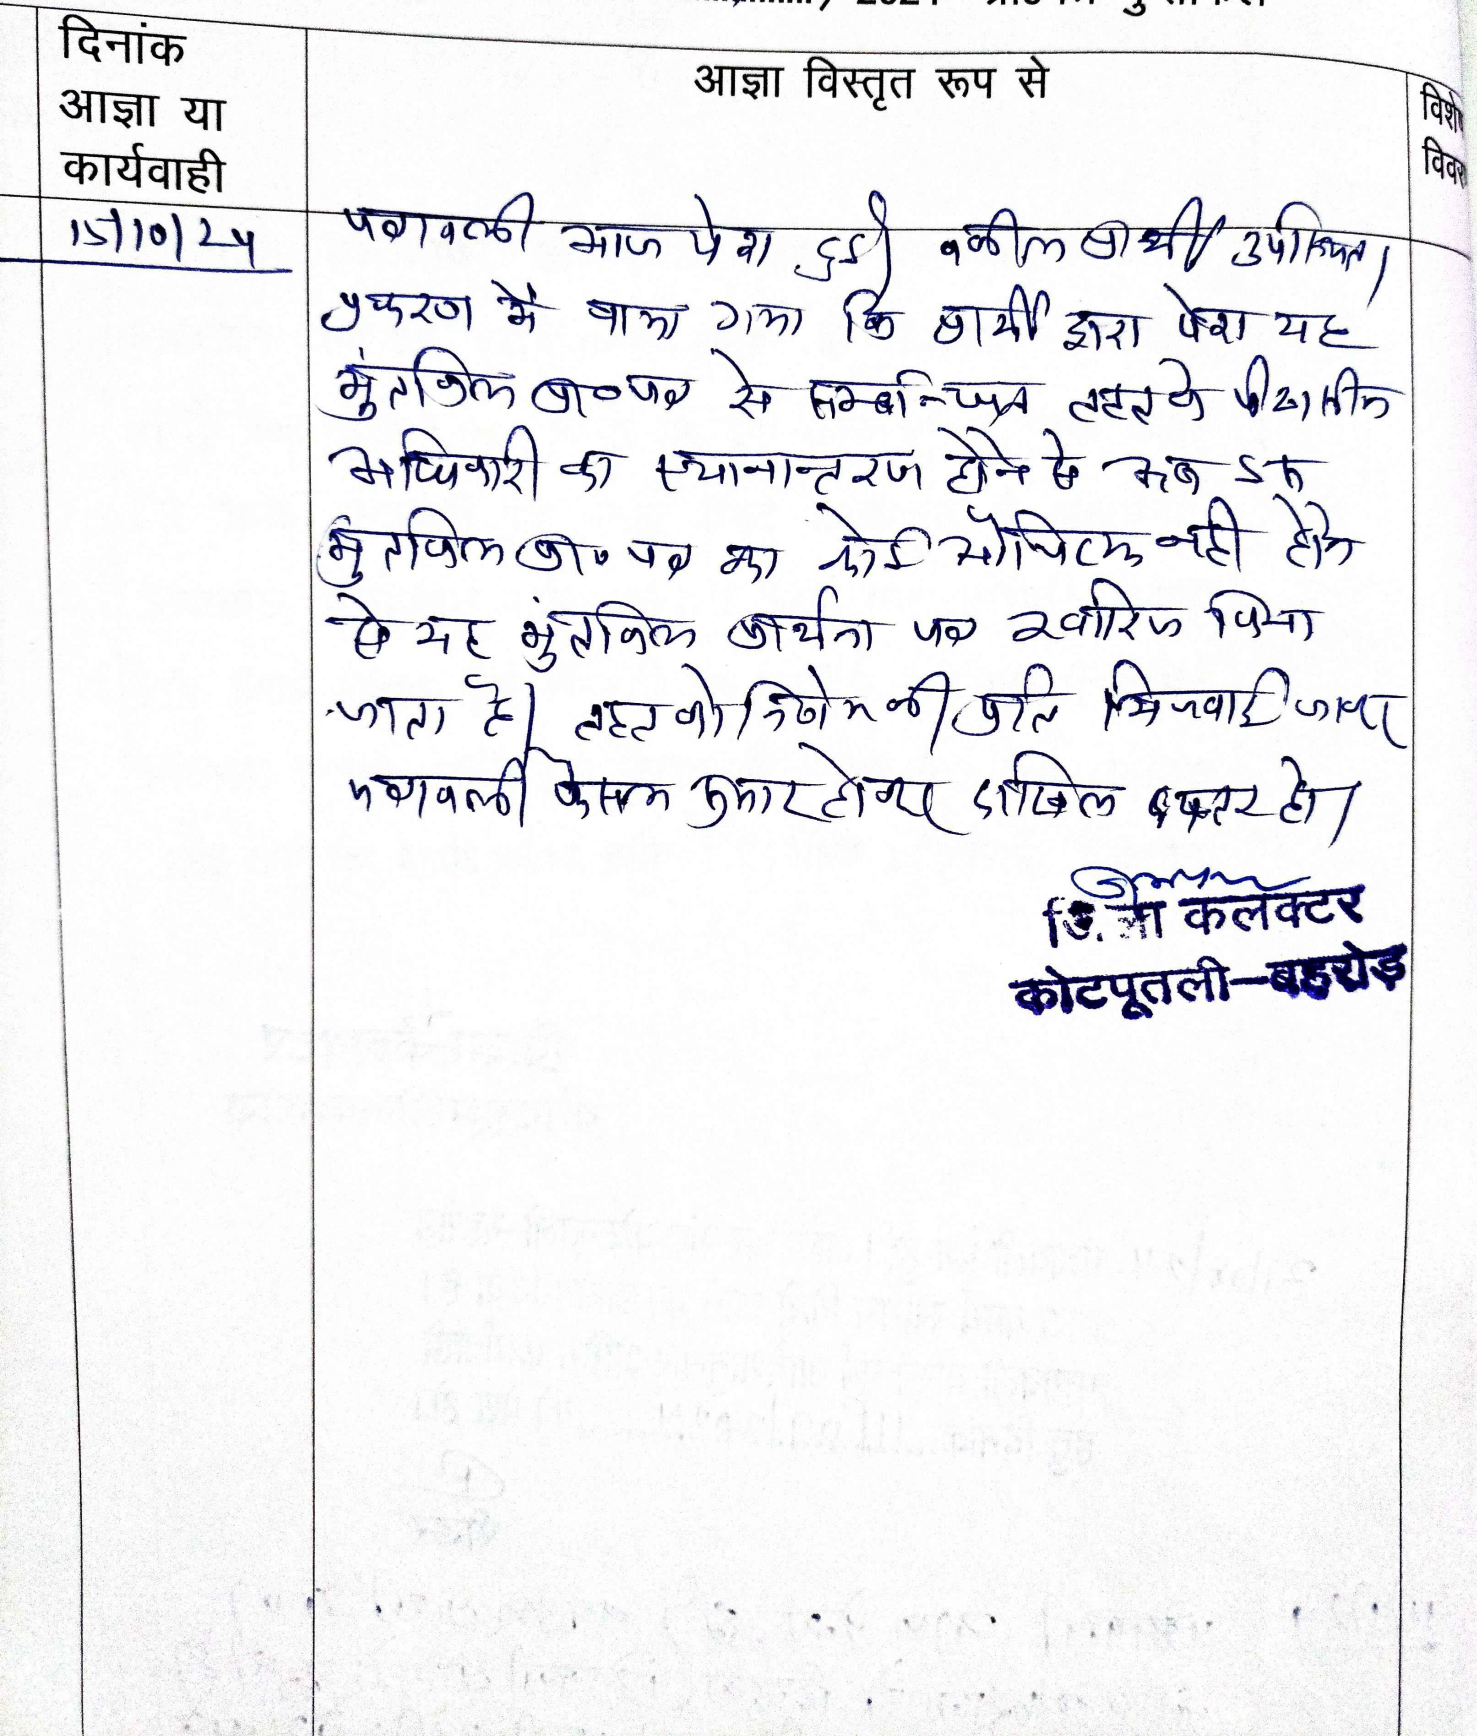 2024
दिनांक
आज्ञा या
कार्यवाही
आज्ञा विस्तृत रूप से
विशे
विवर
15/10/24
पत्रावली आज पेश हुई। वकील प्रार्थी उपस्थित।
प्रकरण में पाया गया कि प्रार्थी द्वारा पेश यह
मुंतकिल प्रा० पत्र से सम्बन्धित तहत के पीठासीन
अधिकारी का स्थानान्तरण होने से अब उक्त
मुंतकिल प्रा० पत्र का कोई औचित्य नही होने
से यह मुंतकिल प्रार्थना पत्र खारिज किया
जाता है। तहत को निर्णय की प्रति भिजवाई जावे।
पत्रावली फैसल शुमार होकर दाखिल दफ्तर हो।
जिला कलक्टर
कोटपूतली-बहरोड़